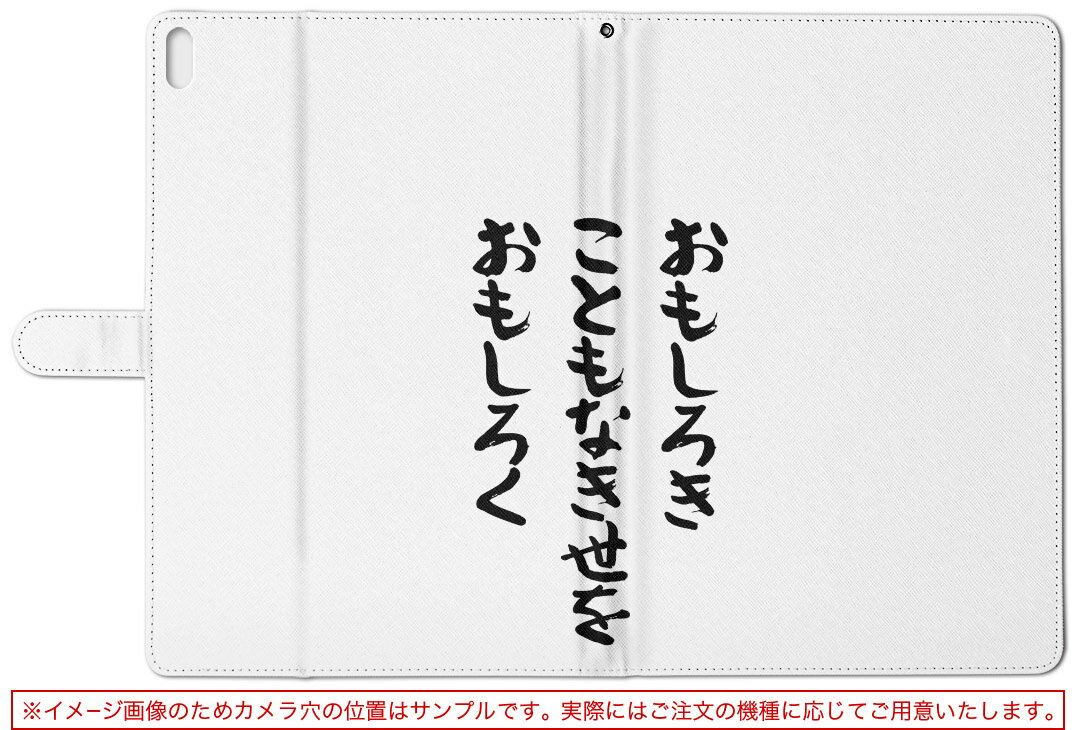 おもしろき
こともなきせを
おもしろく
※イメージ画像のためカメラ穴の位置はサンプルです。実際にはご注文の機種に応じてご用意いたします。